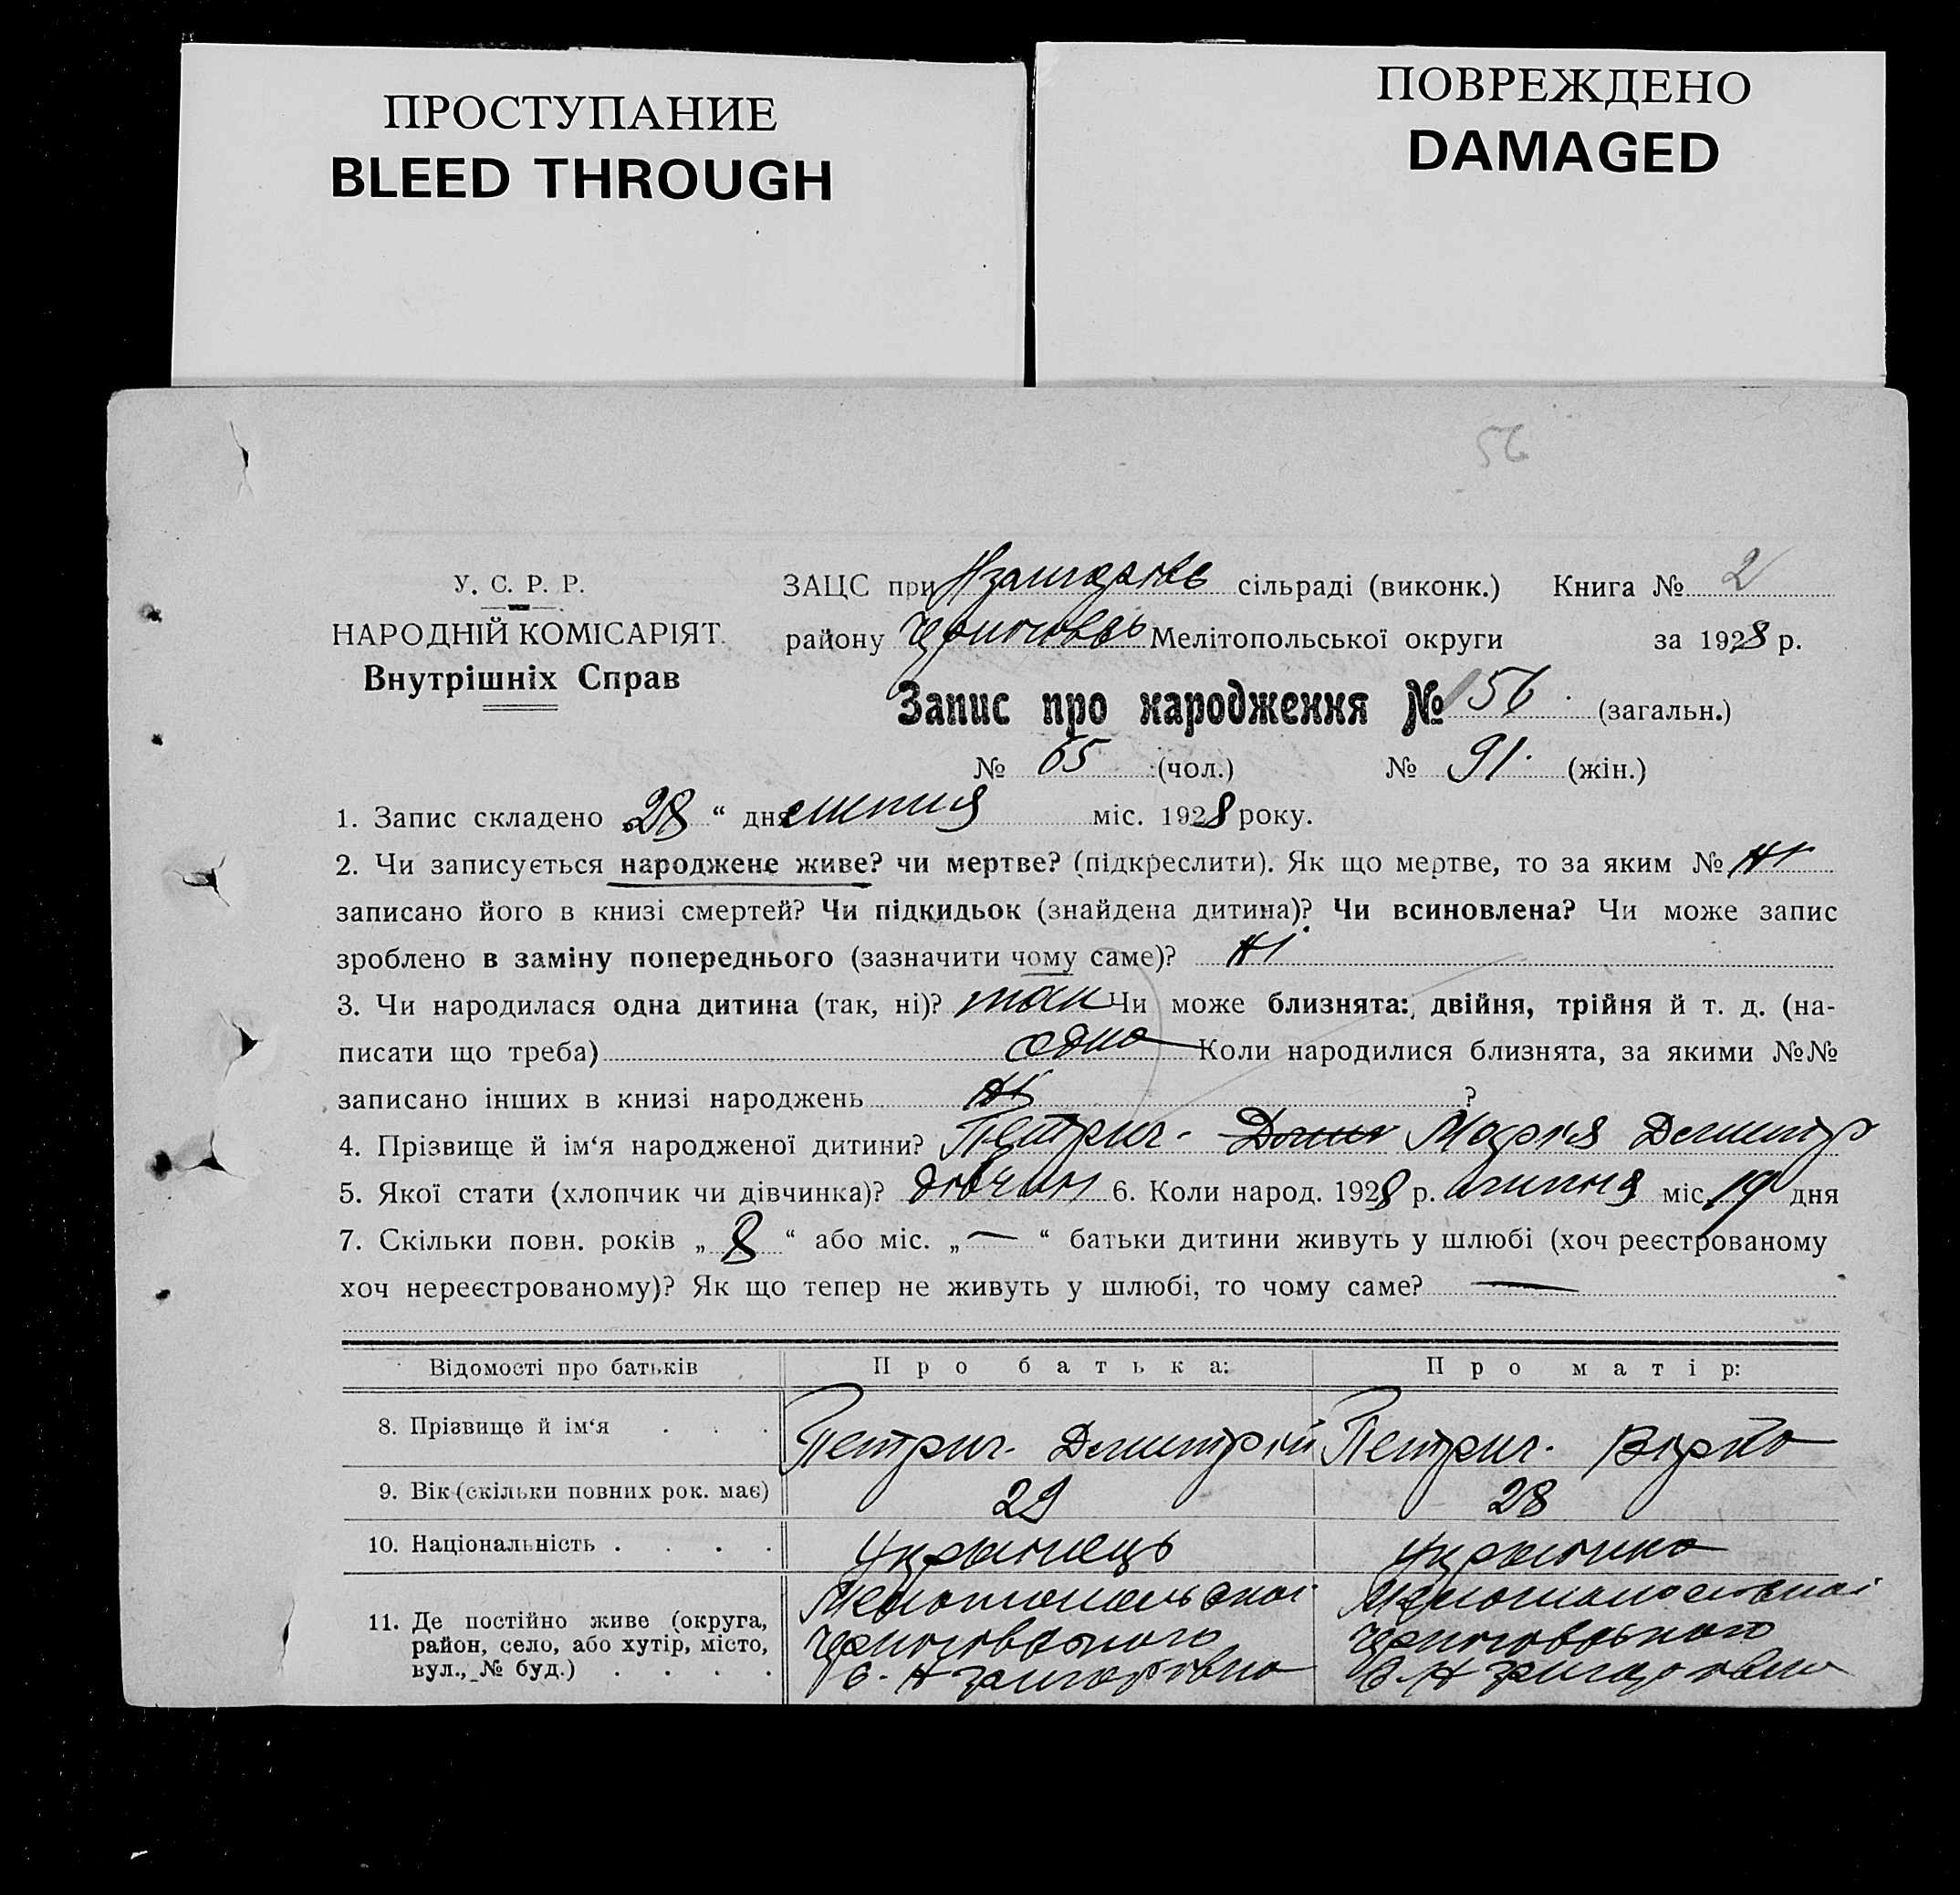 ПРОСТУПАНИЕ
BLEED THROUGH
ПОВРЕЖДЕНО
DAMAGED
56
У. С. Р. Р.
НАРОДНІЙ КОМІСАРІЯТ
Внутрішніх Справ
ЗАЦС при сільраді (виконк.) Книга № 2
району Мелітопольської округи за 1928 р.
Запис про народження № 156 (загальн.)
№ 65 (чол.) № 91 (жін.)
1. Запис складено 28 “ дня липня міс. 1928 року.
2. Чи записується народжене живе? чи мертве? (підкреслити). Як що мертве, то за яким № ні
записано його в книзі смертей? Чи підкидьок (знайдена дитина)? Чи всиновлена? Чи може запис
зроблено в заміну попереднього (зазначити чому саме)? ні
3. Чи народилася одна дитина (так, ні)? так Чи може близнята: двійня, трійня й т. д. (на-
писати що треба) одна Коли народилися близнята, за якими №№
записано інших в книзі народжень ні ?
4. Прізвище й ім‘я народженої дитини? Петрич. Марія Демитр
5. Якої стати (хлопчик чи дівчинка)? дівчин 6. Коли народ. 1928 р. липня міс. 19 дня
7. Скільки повн. років „ 8 “ або міс. „ — “ батьки дитини живуть у шлюбі (хоч реєстрованому
хоч нереєстрованому)? Як що тепер не живуть у шлюбі, то чому саме? —
Відомості про батьків Про батька: Про матір:
8. Прізвище й ім‘я . . . Петрич. Демитрій Петрич. Вірка
9. Вік (скільки повних рок. має) 29 28
10. Національність . . . . Украинець Украинка
11. Де постійно живе (округа, Мелітопольської Мелітопольської
район, село, або хутір, місто, Чернигов
вул., № буд.) . . . . с. с.